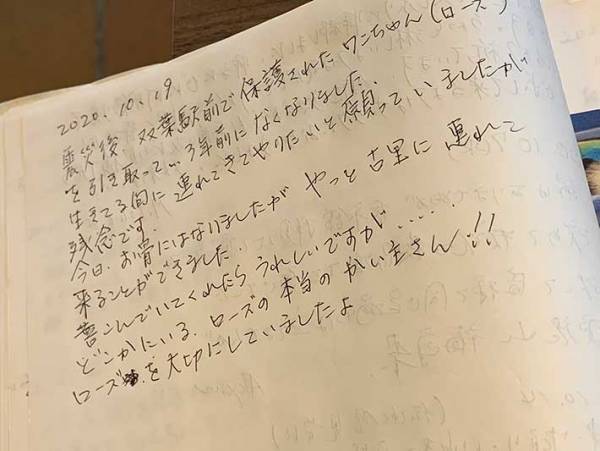 2020.10.19
震災後、双葉駅前で保護されたワンちゃん(ローズ)
を引き取って…3年前になくなりました。
生きてる間に連れてきてやりたいと願っていましたが
残念です。
今日、お骨にはなりましたがやっと古里に連れて
来ることができました。
喜こんでいてくれたらうれしいですが.....
どこかにいる、ローズの本当のかい主さん!!
ローズを大切にしていましたよ